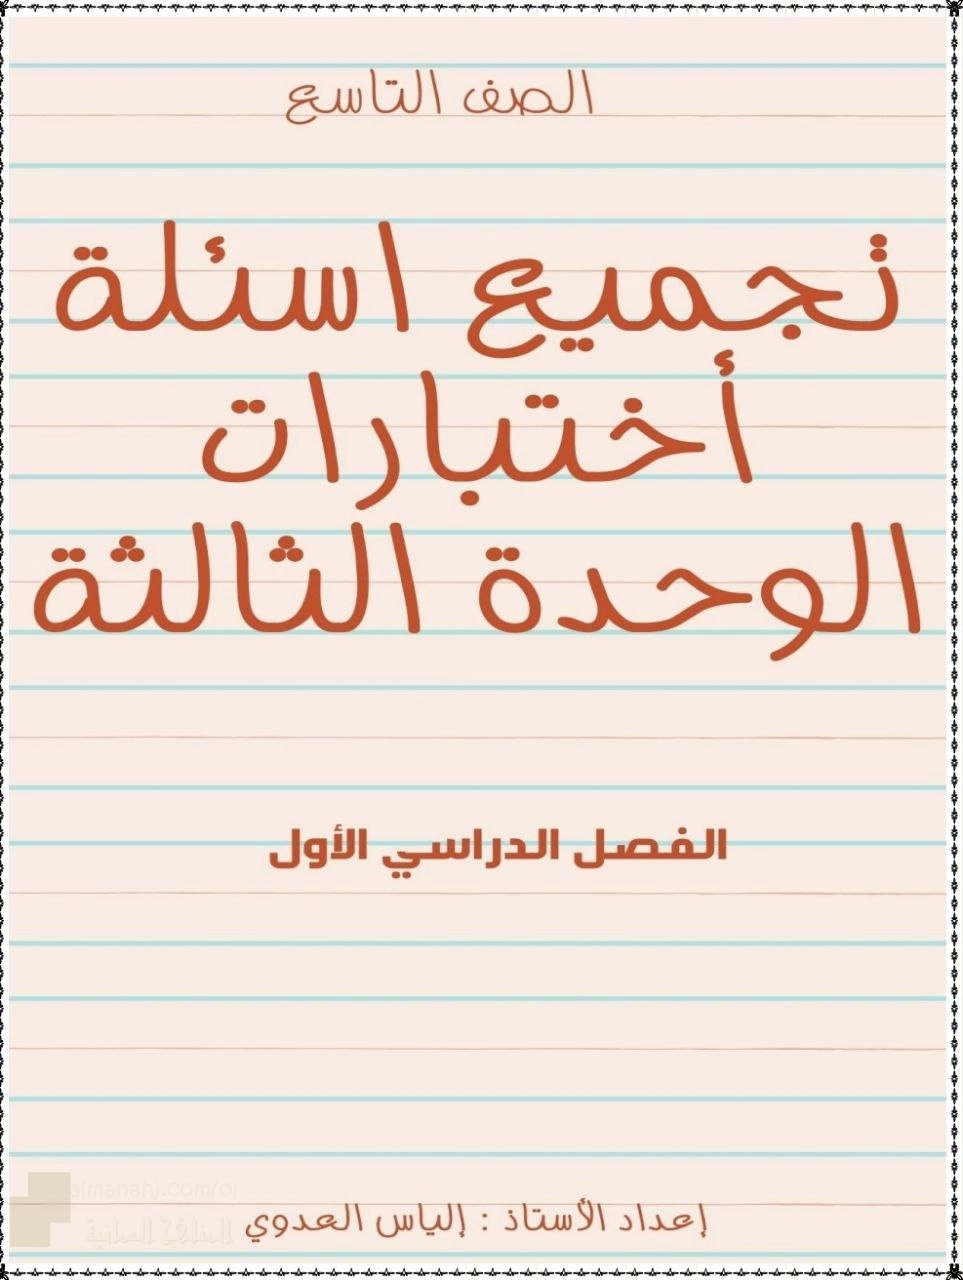 الصف التاسع
تجميع اسئلة
أختبارات
الوحدة الثالثة
الفصل الدراسي الأول
almanahj.com/or
المناهج العمانية
إعداد الأستاذ : إلياس العدوي